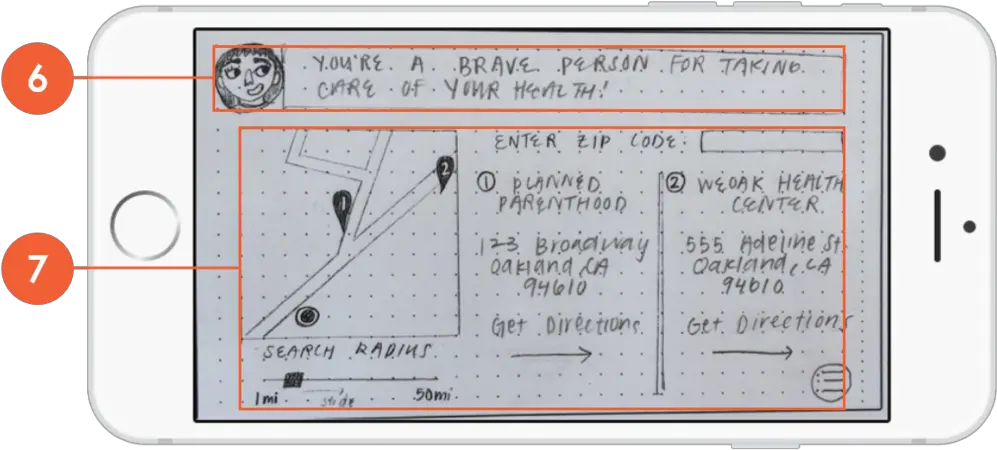 6
YOU'RE A BRAVE PERSON FOR TAKING
CARE OF YOUR HEALTH!
7
1
2
SEARCH RADIUS
1mi
slide
50mi
ENTER ZIP CODE:
① PLANNED
PARENTHOOD
123 Broadway
Oakland, CA
94610
Get Directions
② WEOAK HEALTH
CENTER
555 Adeline St.
Oakland, CA
94610
Get Directions